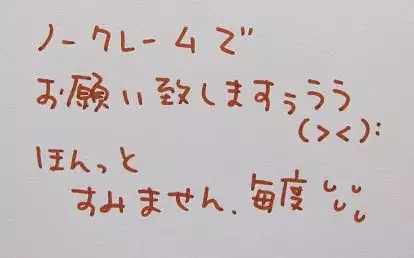 ノークレームで
お願い致しますぅうう
(><):
ほんっと
すみません、毎度